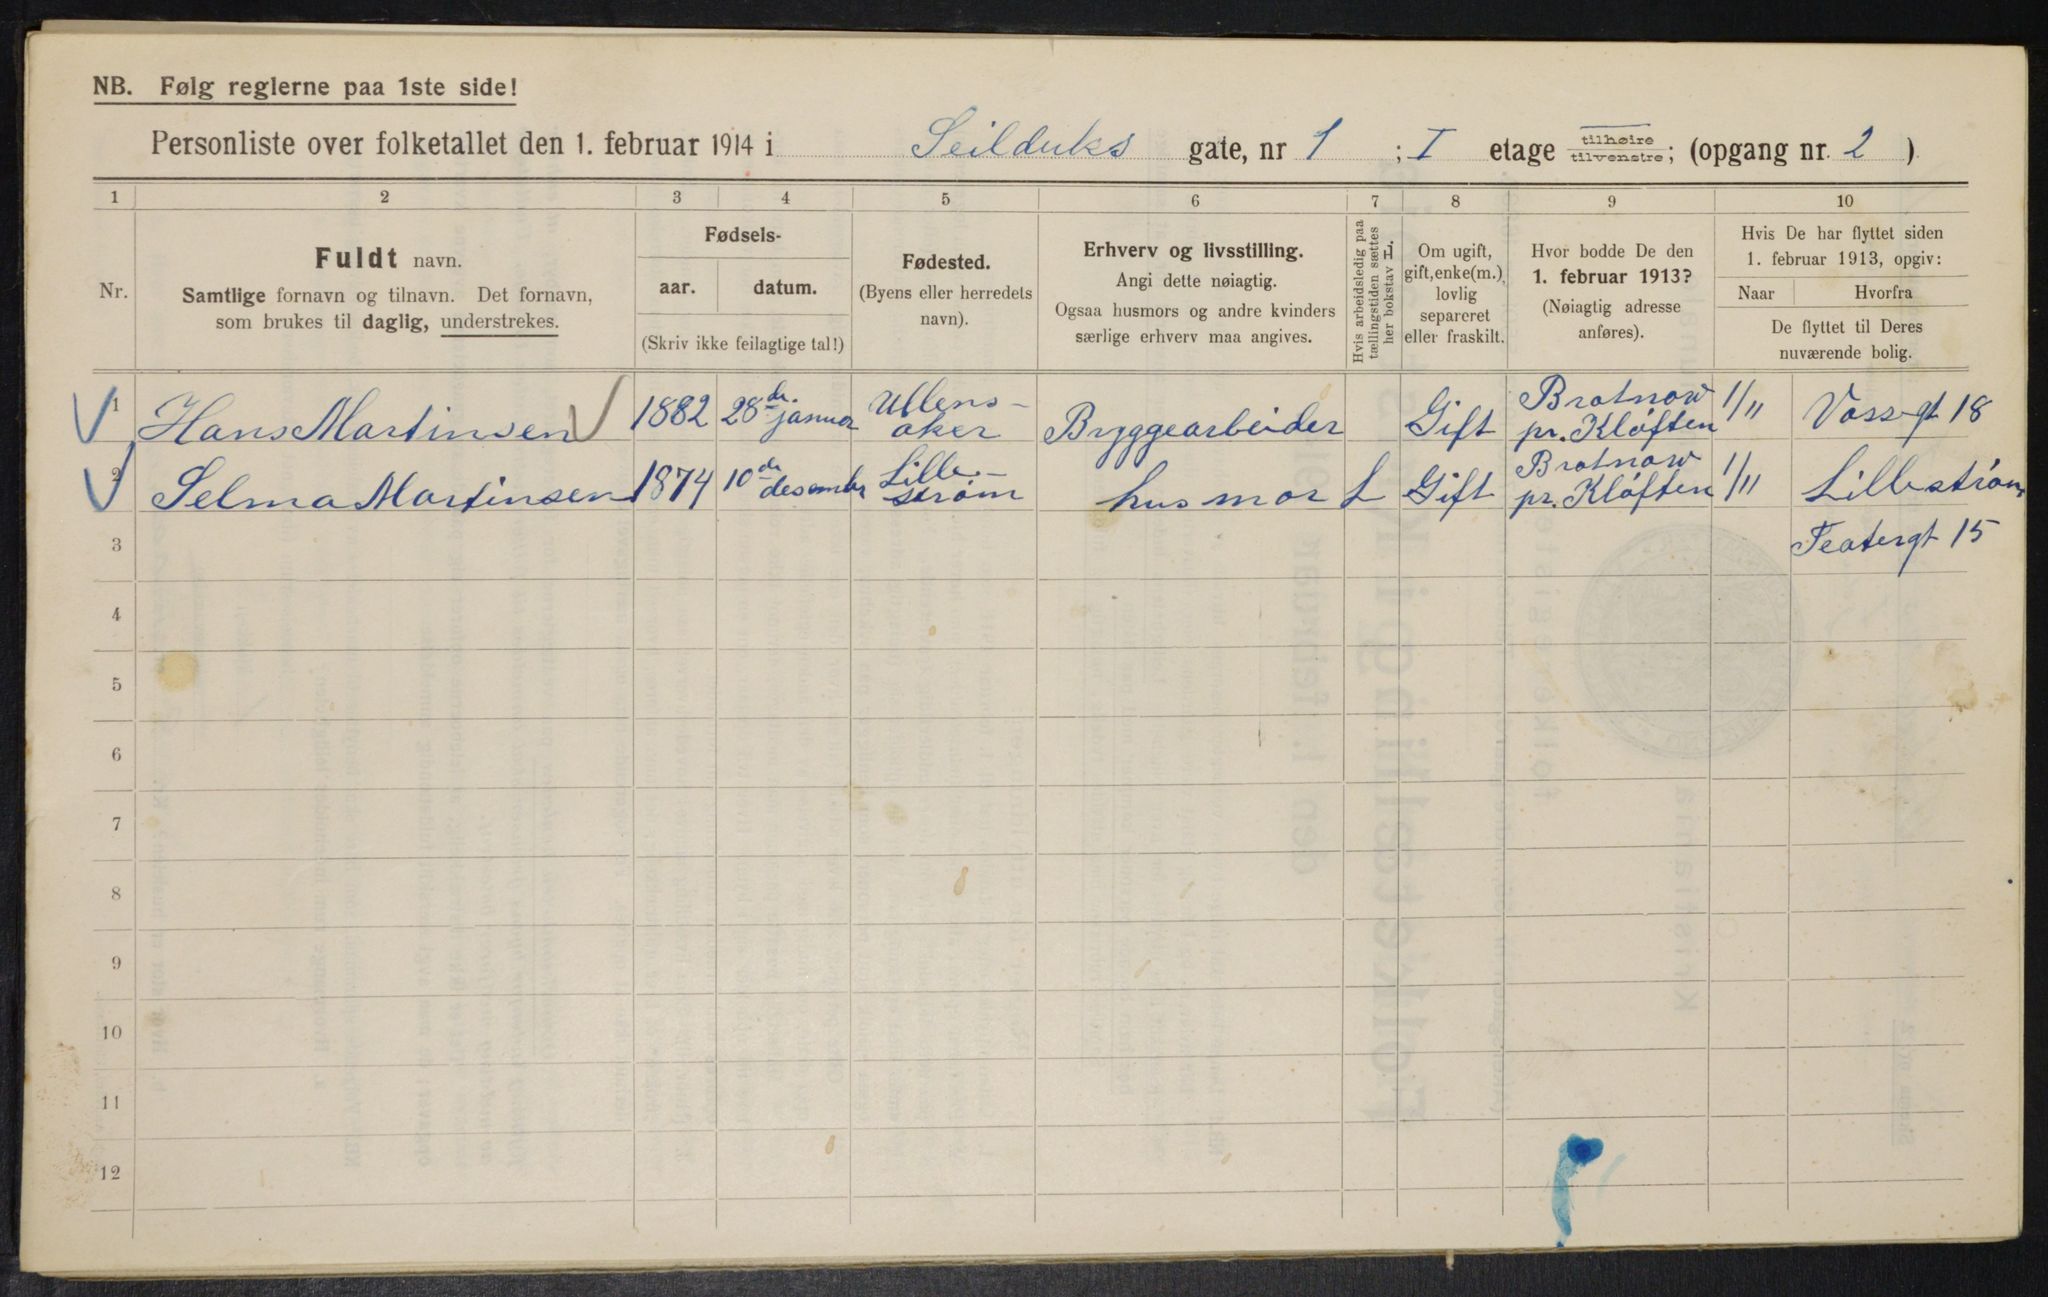 NB. Følg reglerne paa 1ste side!
Personliste over folketallet den 1. februar 1914 i Seilduks gate, nr 1 ; I etage tilhøire / tilvenstre; (opgang nr. 2 )
1 2 3 4 5 6 7 8 9 10
Nr.
Fuldt navn.
Samtlige fornavn og tilnavn. Det fornavn,
som brukes til daglig, understrekes.
Fødsels-
aar. datum.
(Skriv ikke feilagtige tal!)
Fødested.
(Byens eller herredets
navn).
Erhverv og livsstilling.
Angi dette nøiagtig.
Ogsaa husmors og andre kvinders
særlige erhverv maa angives.
Hvis arbeidsledig paa
tællingstiden sættes
her bokstav L.
Om ugift,
gift, enke(m.),
lovlig
separeret
eller fraskilt.
Hvor bodde De den
1. februar 1913?
(Nøiagtig adresse
anføres).
Hvis De har flyttet siden
1. februar 1913, opgiv:
Naar Hvorfra
De flyttet til Deres
nuværende bolig.
1 Hans Martinsen 1882 28de januar Ullens-
aker Bryggearbeider Gift Brotnow
pr. Kløften 1/11 Vossgt 18
2 Selma Martinsen 1874 10de desember Lille-
strøm husmor L Gift Brotnow
pr. Kløften 1/11 Lillestrøm
3 Teatergt 15
4
5
6
7
8
9
10
11
12